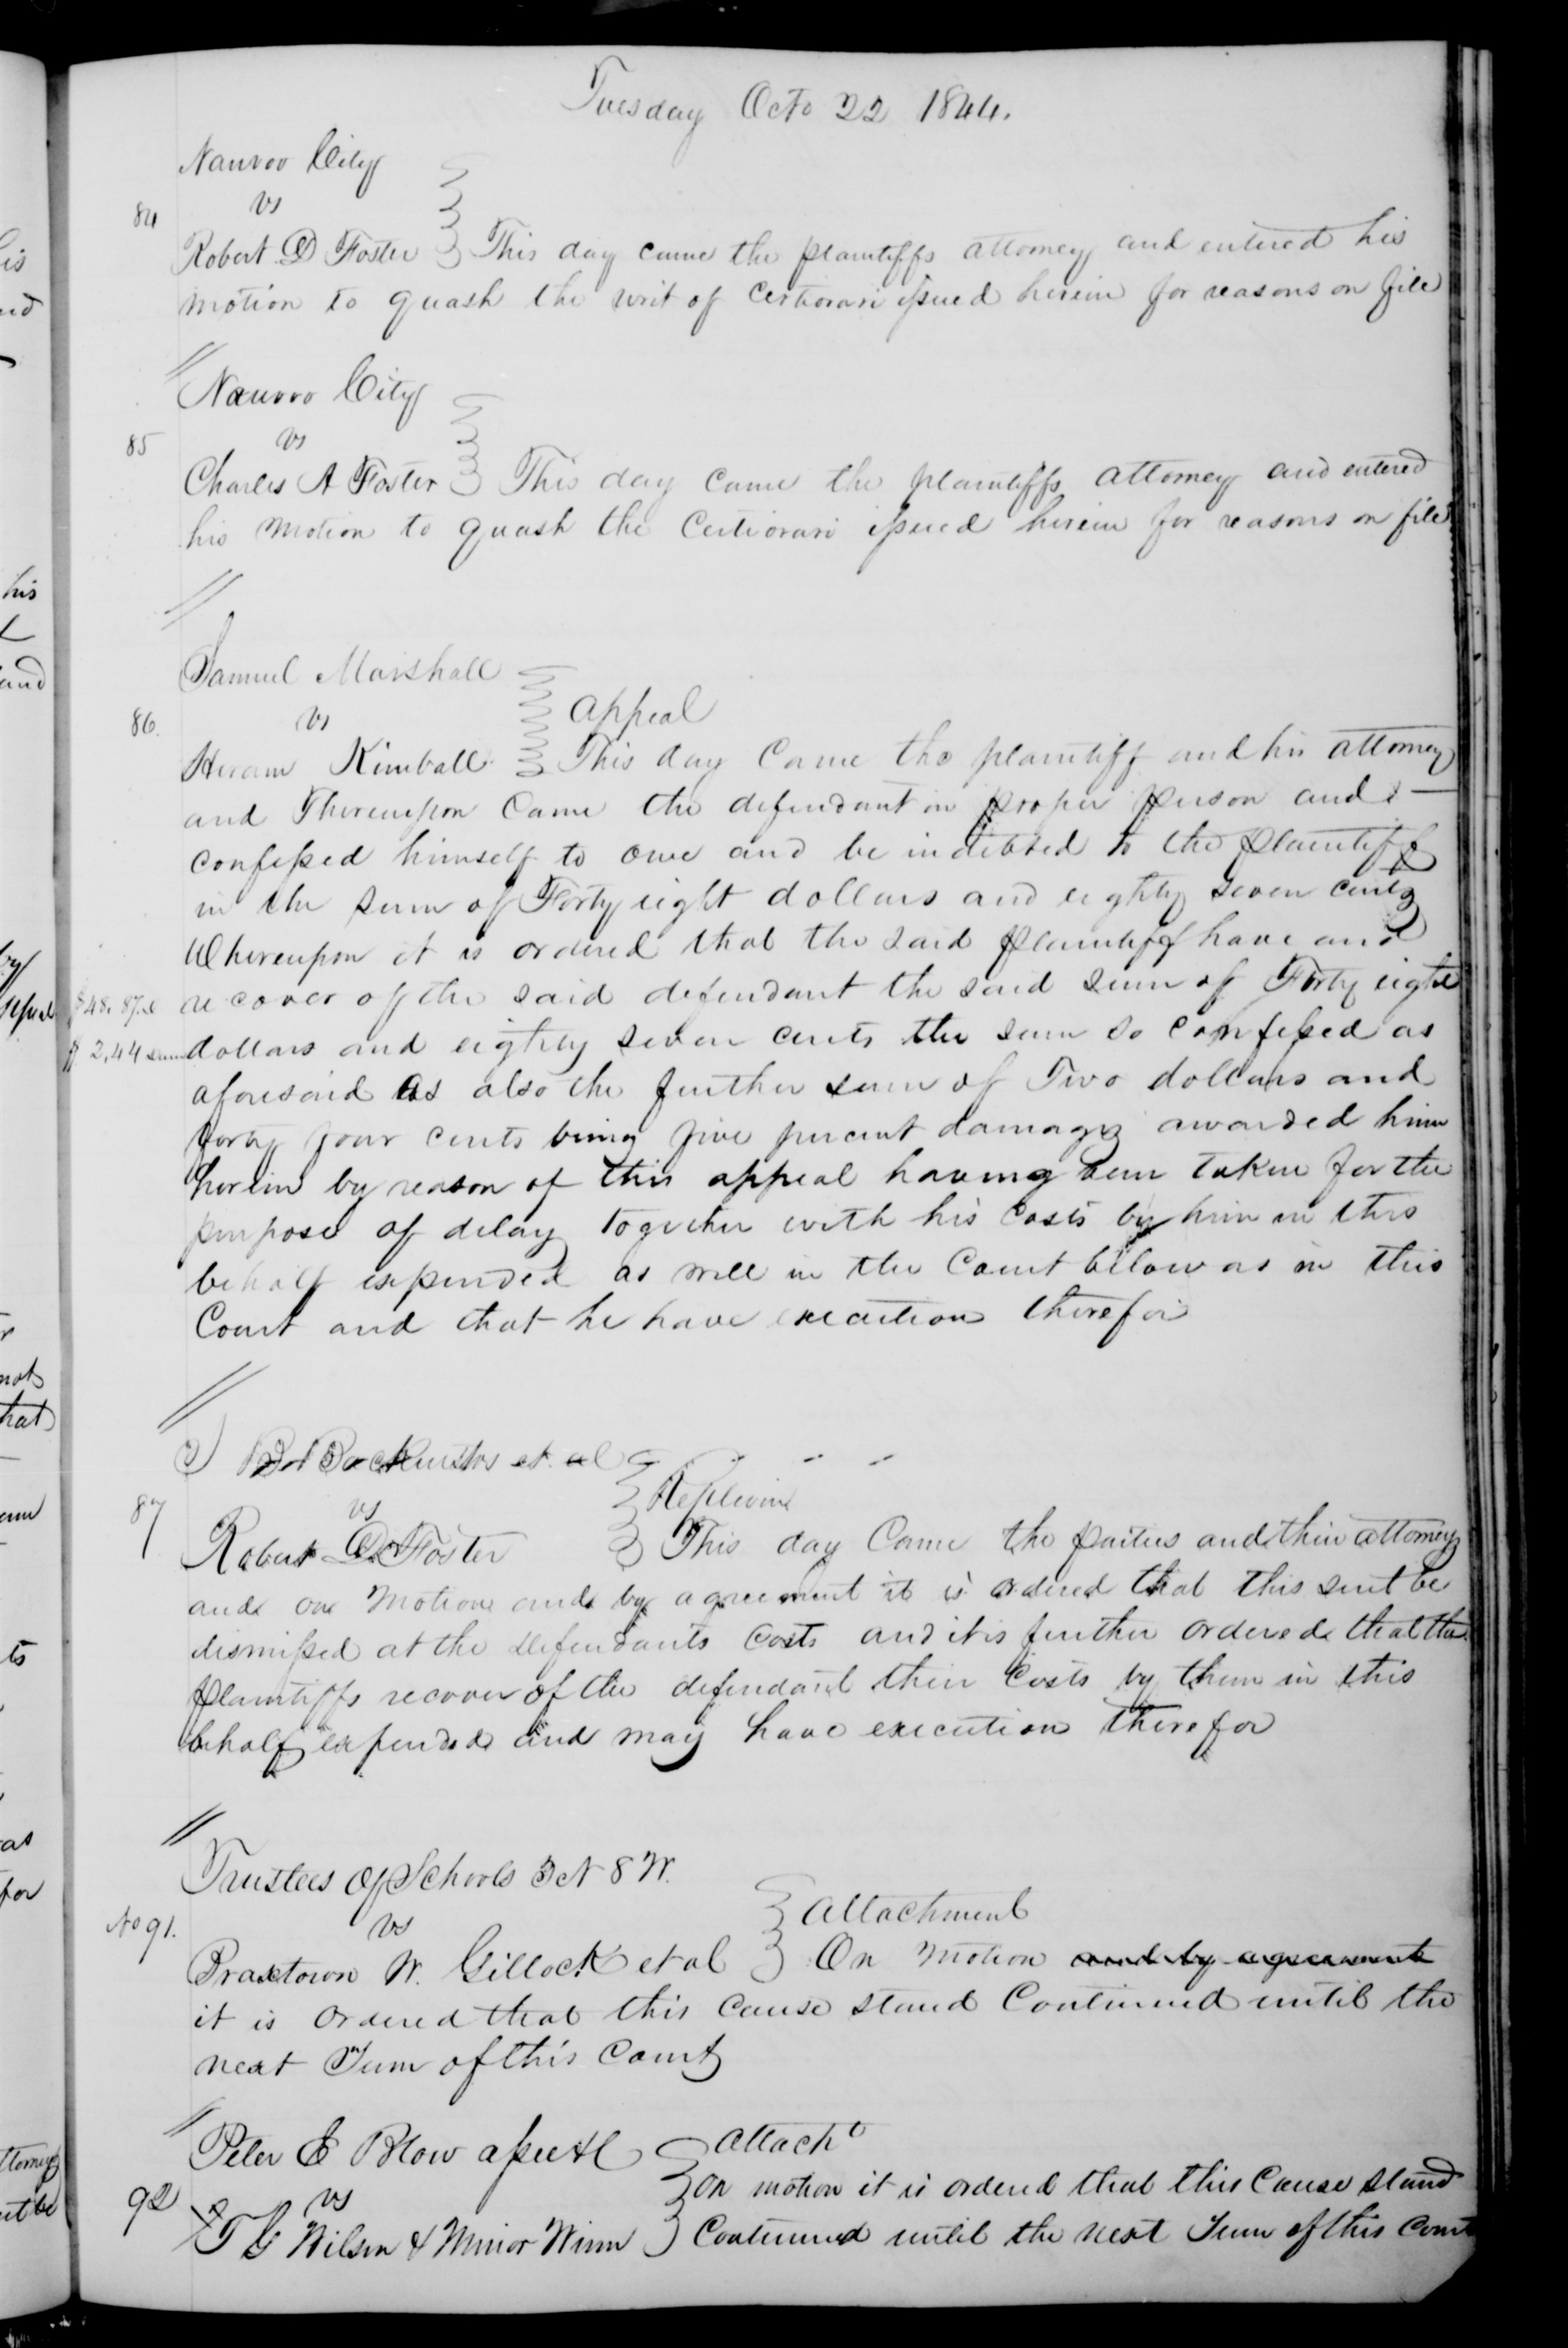 Tuesday Octo 22 1844.
Nauvoo City
vs
84
Robert D Foster This day came the plaintiffs attorney and entered his
motion to quash the writ of Certiorari issued herein for reasons on file
Nauvoo City
85
vs
Charles A Foster This day came the plaintiffs attorney and entered
his motion to quash the Certiorari issued herein for reasons on file
Samuel Marshall
appeal
86.
vs
Hiram Kimball This day Came the plaintiff and his attorney
and Thereupon Came the defendant in proper person and
confessed himself to owe and be indebted to the plaintiff
in the sum of Forty eight dollars and eighty seven cents
Whereupon it is ordered that the said plaintiff have and
$48.87.
recover of the said defendant the said sum of Forty eight
$ 2,44
dollars and eighty seven cents the sum so confessed as
aforesaid as also the further sum of Two dollars and
forty four cents being five percent damages awarded him
herein by reason of this appeal having been taken for the
purpose of delay together with his costs by him in this
behalf expended as well in the Court below as in this
Court and that he have execution therefor
Backenstos et al
Replevin
87
vs
Robert D Foster This day Came the parties and their attorneys
and on motion and by agreement it is ordered that this suit be
dismissed at the defendants costs and it is further ordered that the
plaintiffs recover of the defendant their costs by them in this
behalf expended and may have execution therefor
Trustees of Schools 3 N 8 W.
Attachment
No 91.
vs
Braxtown W. Gillock et al On motion and by agreement
it is ordered that this cause stand Continued until the
next Term of this Court
Peter E Blow assee &c attacht
92
vs
On motion it is ordered that this Cause stand
T G Wilson & Minor Winn Continued until the next Term of this Court